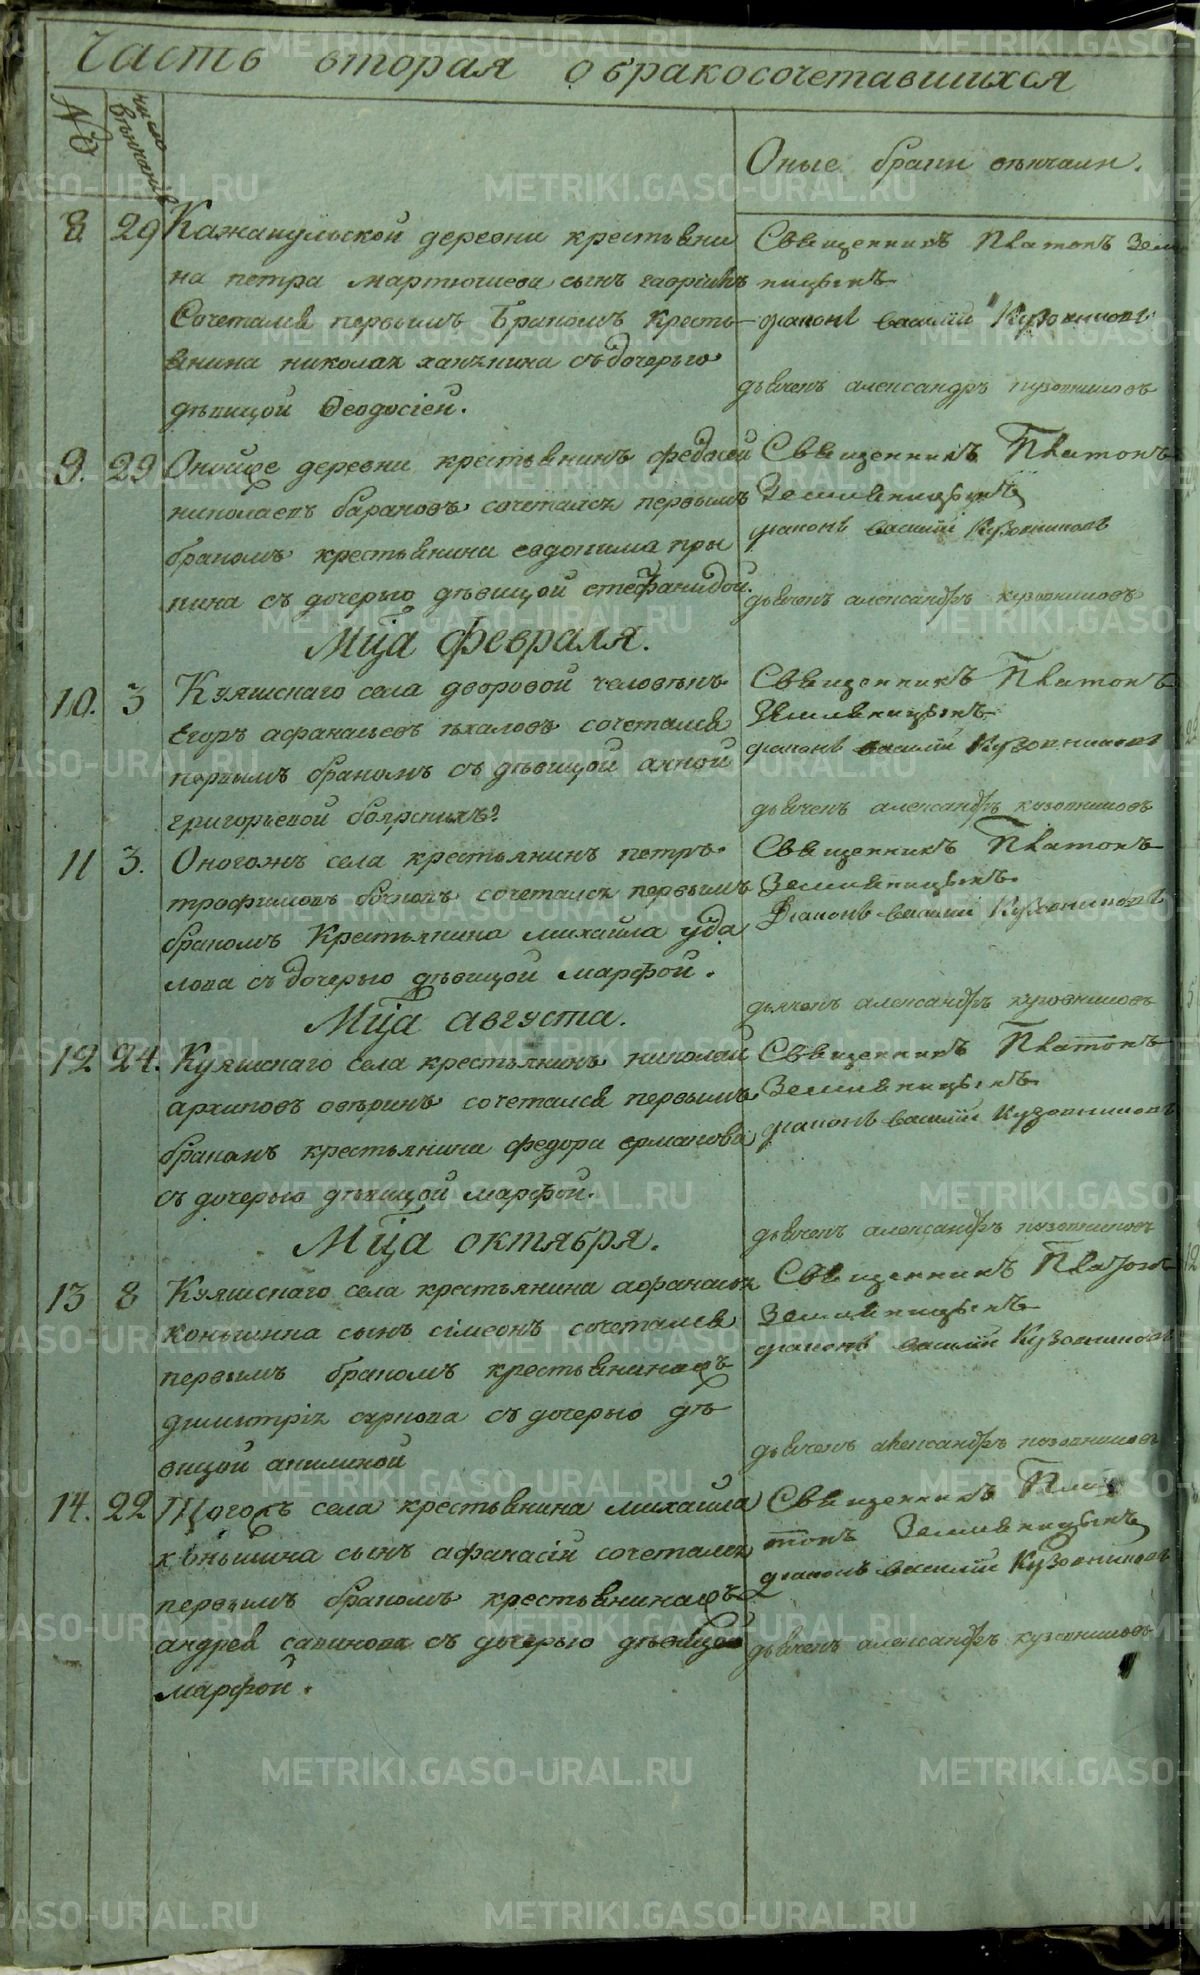 Часть вторая о бракосочетавшихся
№
число венчания
Оные браки венчали.
8. 29 Кажакульской деревни крестьяни
на петра мартюшева сынъ гавріилъ
Сочетался первымъ Бракомъ кресть
янина николая съ дочерью
девицой Феодосіей.
Священникъ Платонъ Земля
ницынъ
діаконъ василій Кузовниковъ
дьячекъ александръ кузовниковъ
9. 29 Онойже деревни крестьянинъ федосей
николаевъ барановъ сочетался первымъ
бракомъ крестьянина евдокима
съ дочерью девицой стефанидой.
Священникъ Платонъ
Земляницынъ
діаконъ василій Кузовниковъ
дьячекъ александръ кузовниковъ
Мца февраля.
10. 3 Куяшскаго села дворовой человекъ
Егоръ афанасьевъ сочетался
первымъ бракомъ съ девицой анной
григорьевой
Священникъ Платонъ
Земляницынъ
діаконъ василій Кузовниковъ
дьячекъ александръ кузовниковъ
11 3. Оногожъ села крестьянинъ петръ
трофимовъ сочетался первымъ
бракомъ Крестьянина михаила уда
лова съ дочерью девицой марфой.
Священникъ Платонъ
Земляницынъ
Діаконъ василій Кузовниковъ
дьячекъ александръ кузовниковъ
Мца августа.
12 24. Куяшскаго села крестьянинъ николай
архиповъ оверинъ сочетался первымъ
бракомъ крестьянина федора ермакова
съ дочерью девицой марфой.
Священникъ Платонъ
Земляницынъ
діаконъ василій Кузовниковъ
дьячекъ александръ кузовниковъ
Мца октября.
13 8 Куяшскаго села крестьянина афанасья
коньшина сынъ сімеонъ сочетался
первымъ бракомъ крестьянина
димитрія съ дочерью де
вицой акилиной
Священникъ Платонъ
Земляницынъ
діаконъ василій Кузовниковъ
дьячекъ александръ кузовниковъ
14. 22 Тогожъ села крестьянина михаила
коньшина сынъ афанасій сочетался
первымъ бракомъ крестьянина
андрея савинова съ дочерью девицой
марфой.
Священникъ Пла
тонъ Земляницынъ
діаконъ василій Кузовниковъ
дьячекъ александръ кузовниковъ
METRIKI.GASO-URAL.RU